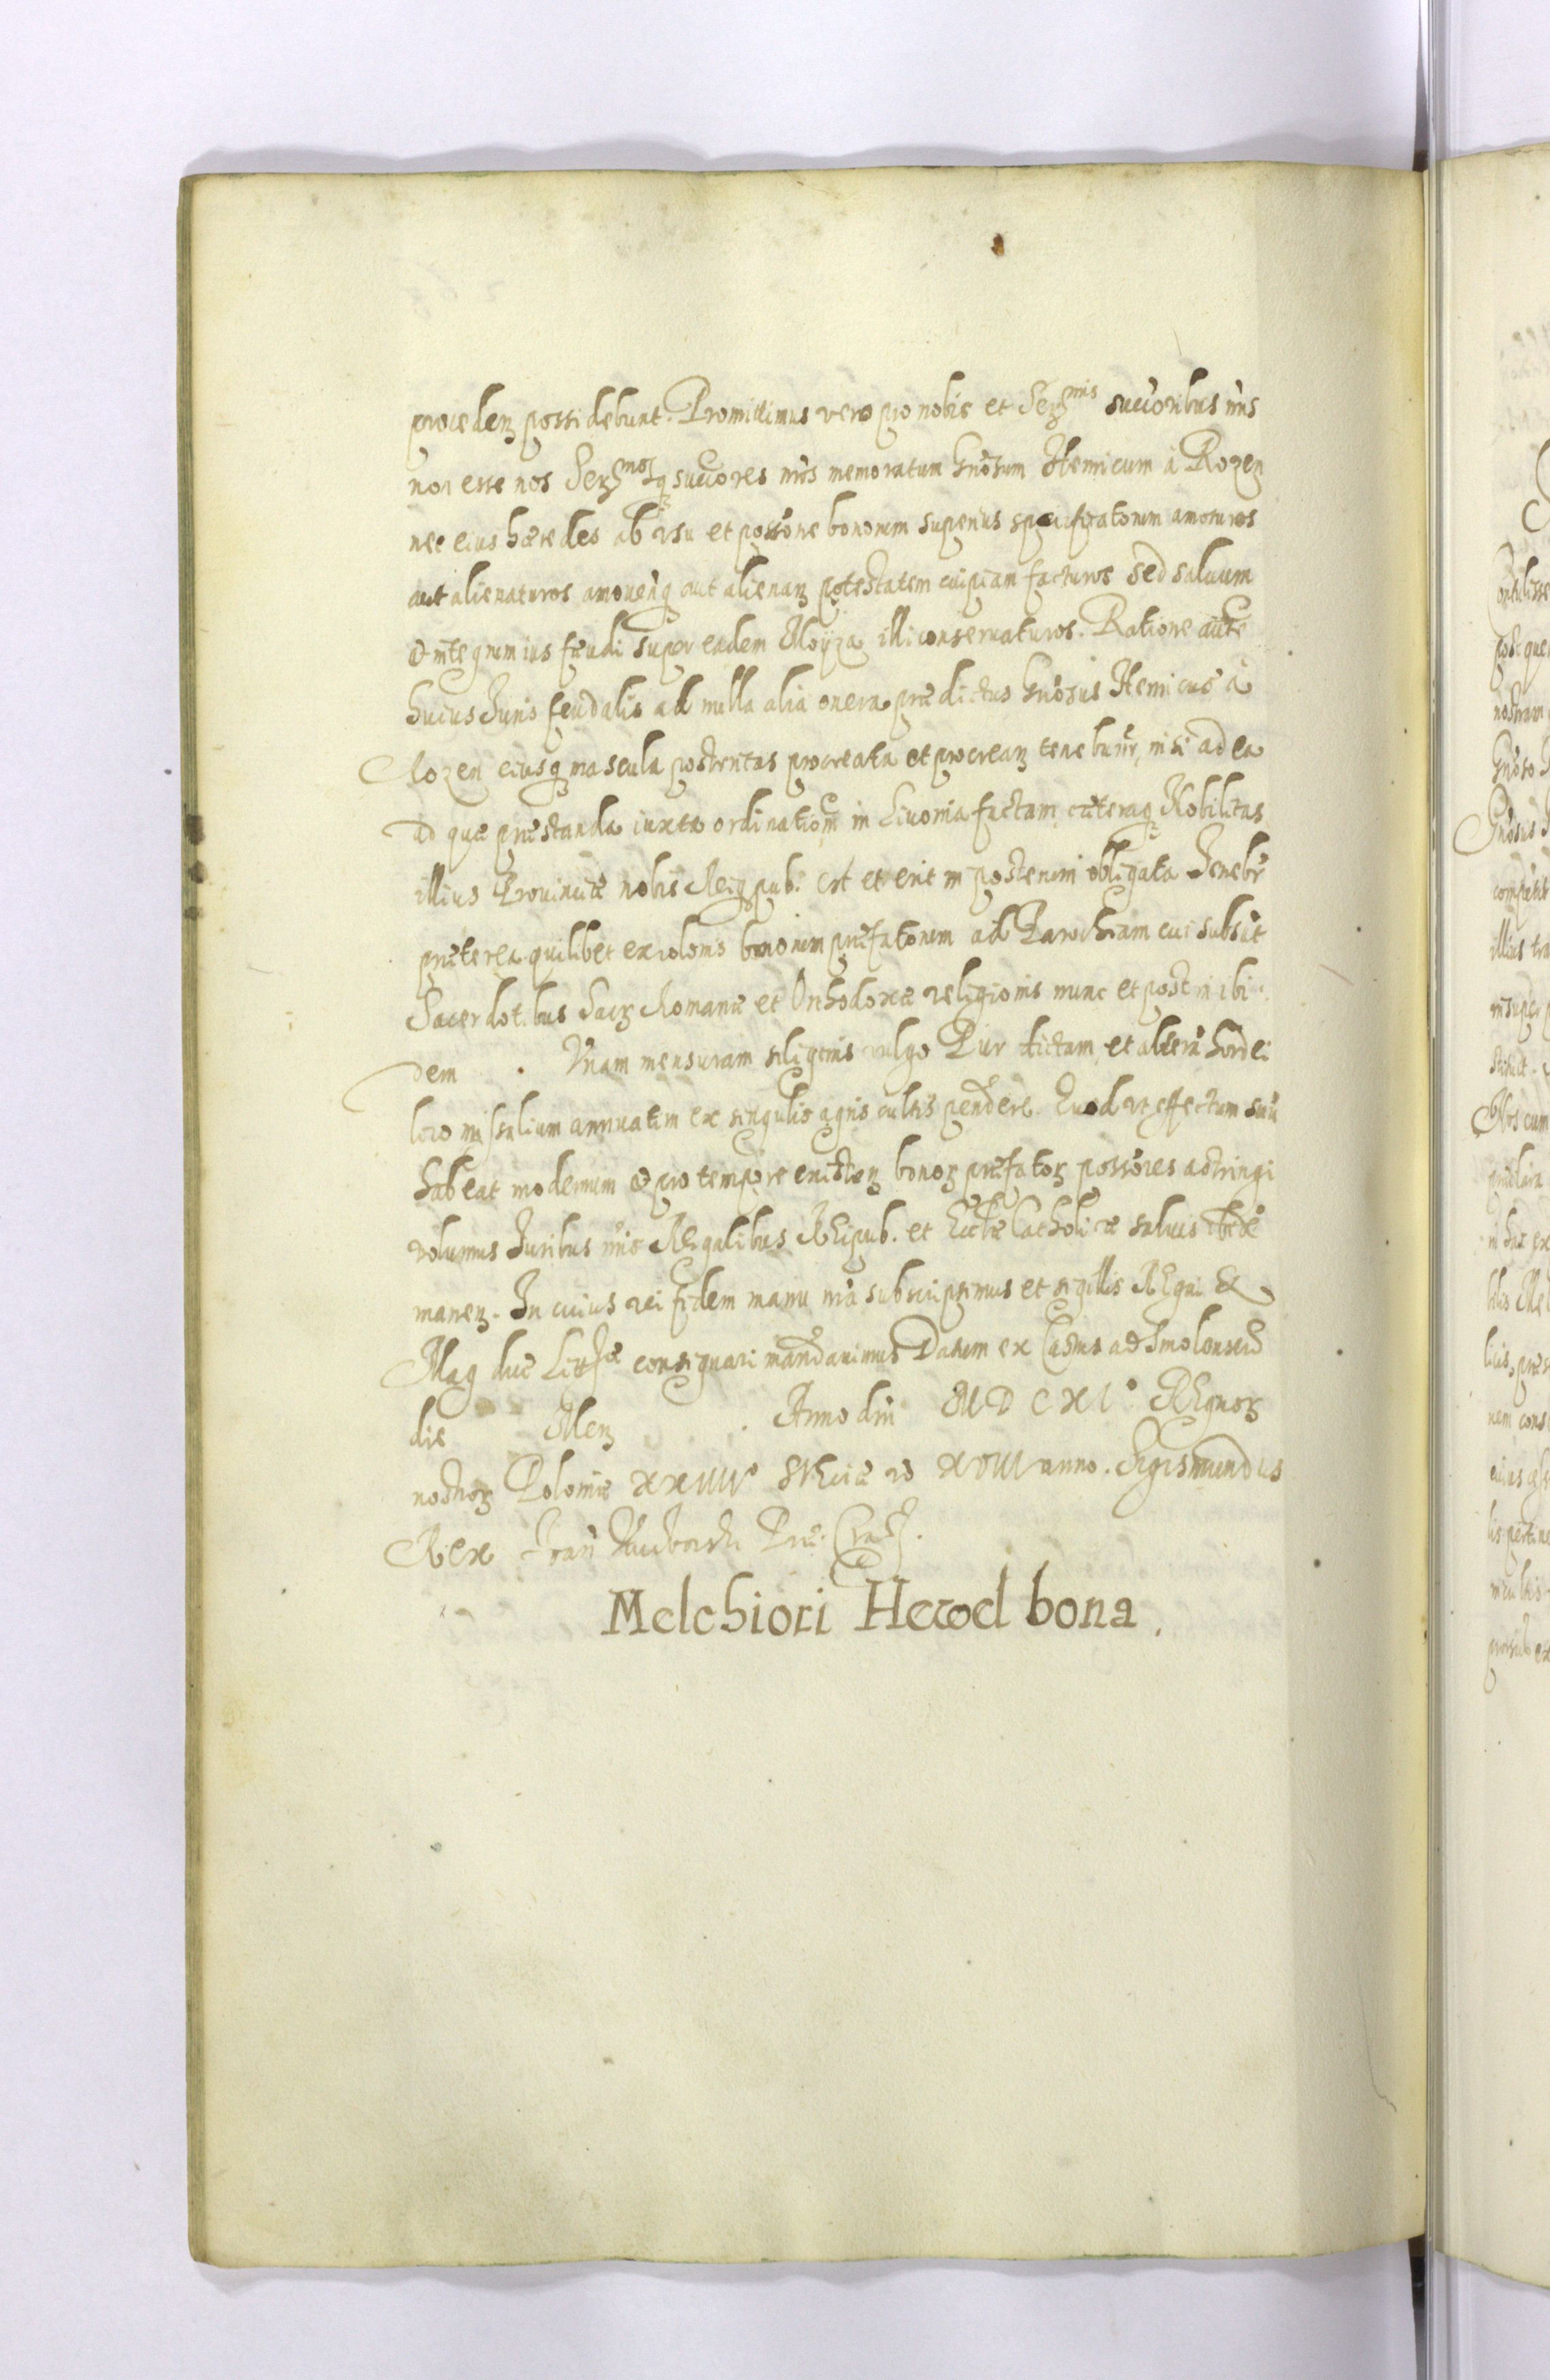 proceden possidebunt. Promittimus vero pro nobis et Serمnis succoribus nris
non esse nos Sermosq succores nros memoratum Gnosum Henricum à Rozen
nec eius hæredes ab vsu et possone bonorum superius specificatorum amoturos
aut alienaturos amouendiq aut alienan potestatem cuipiam facturos sed saluum
& integrum ius feudi super eadem Moyza illi conseruaturos. Ratione aute
huius Iuris feudalis ad nulla alia onera præ dictus Gnosus Henricus à
Rozen eiusq mascula posteritas procreata et procrean tenebuntr, nisi ad ea
ad quæ præstanda iuxta ordinationem in Liuonia factam cæteraq Nobilitas
illius Prouinciæ nobis Reiqpub. est et erit in posterum obligata Tenebr
præterea quilibet ex colonis bonorum præfatorum ad Parochiam cui subsit
Sacerdotibus Sacr Romanæ et Orthodoxæ religionis nunc et postm ibi
dem . Vnam mensuram siliginis vulgo Pur dictam et alterã hordei
loco missalium annuatim ex singulis agris cultis pendere. Quod vt effectum suũ
habeat modernum & pro tempore existen bonor præfator possores astringi
volumus Iuribus nris Regalibus Reipub. et Ecclæ Catholicæ saluis
manen. In cuius rei fidem manu nra subscripsimus et sigillis Regni &
Mag duc Litt consignari mandauimus Datum ex Castris ad Smolenscũ
die Men . Anno dni MDCXIo Regnor
nostror Poloniæ XXIIIIo Sueciæ vo XVIII anno. Sigismundus
Rex
Melchiori Hewel bona.